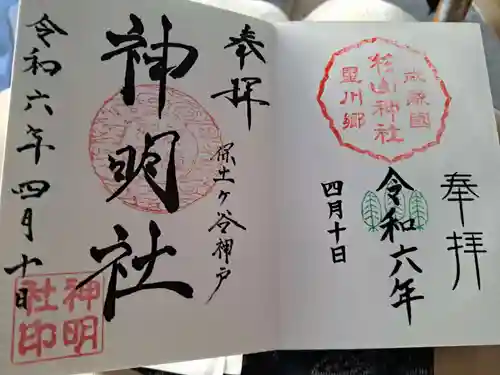 奉拝
武蔵國
杉山神社
星川郷
令和六年
四月十日
奉拝
保土ヶ谷神戸
神明社
令和六年四月十日
神明
社印